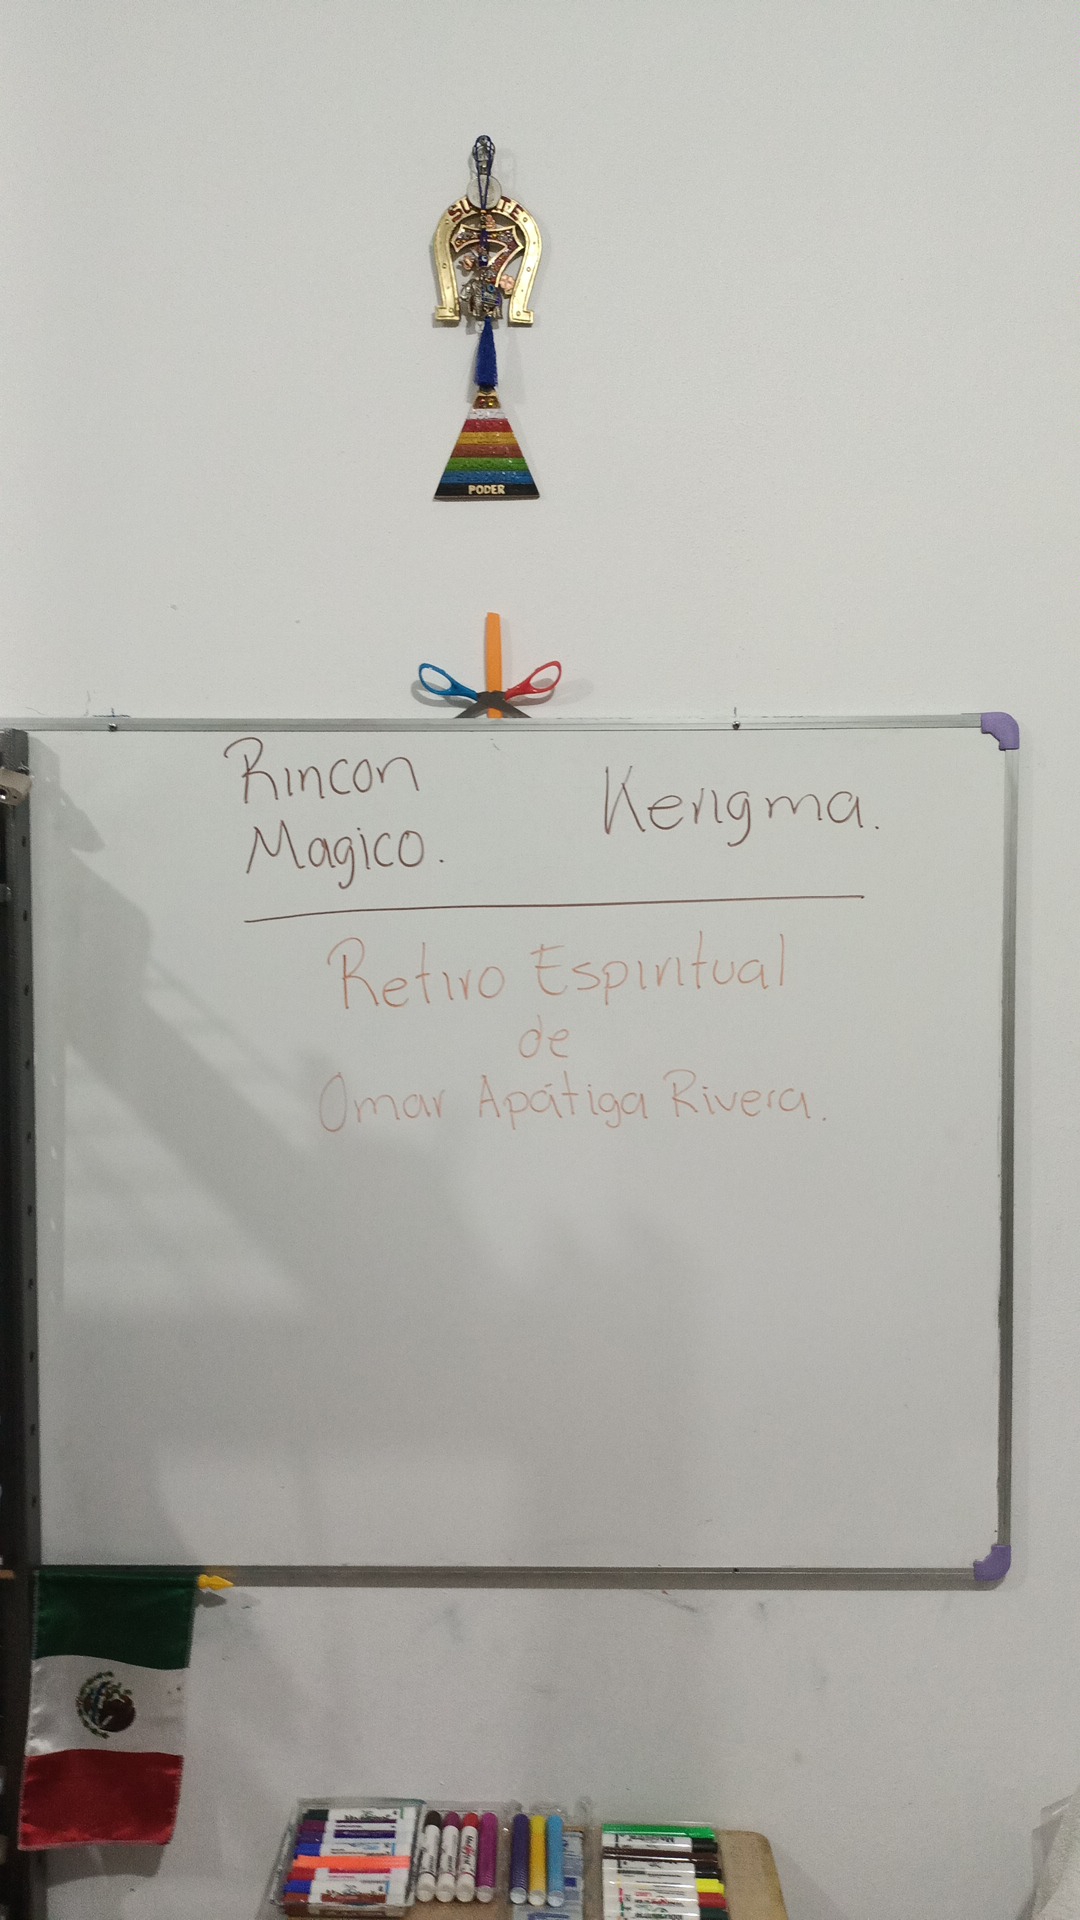 PODER
Rincon
Magico.
Kerigma.
Retiro Espiritual
de
Omar Apátiga Rivera.